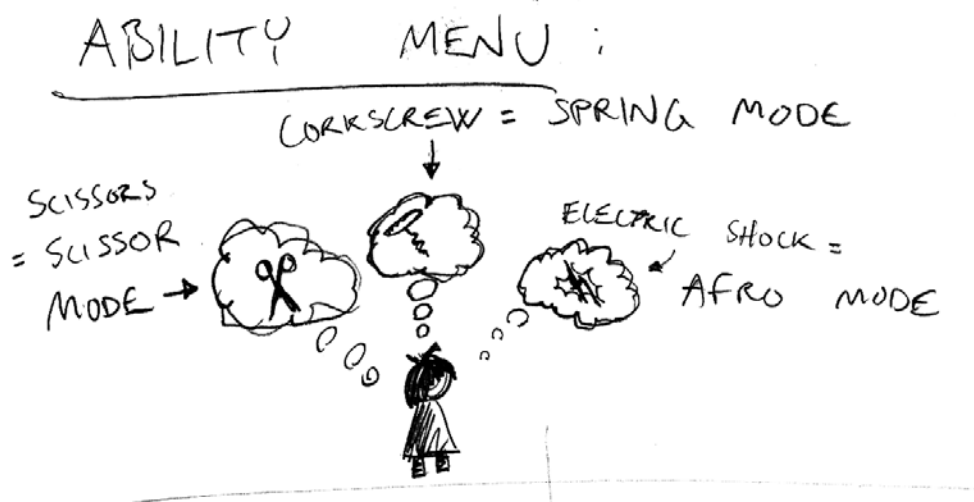 ABILITY MENU :
CORKSCREW = SPRING MODE
SCISSORS
= SCISSOR
MODE
ELECTRIC SHOCK =
AFRO MODE